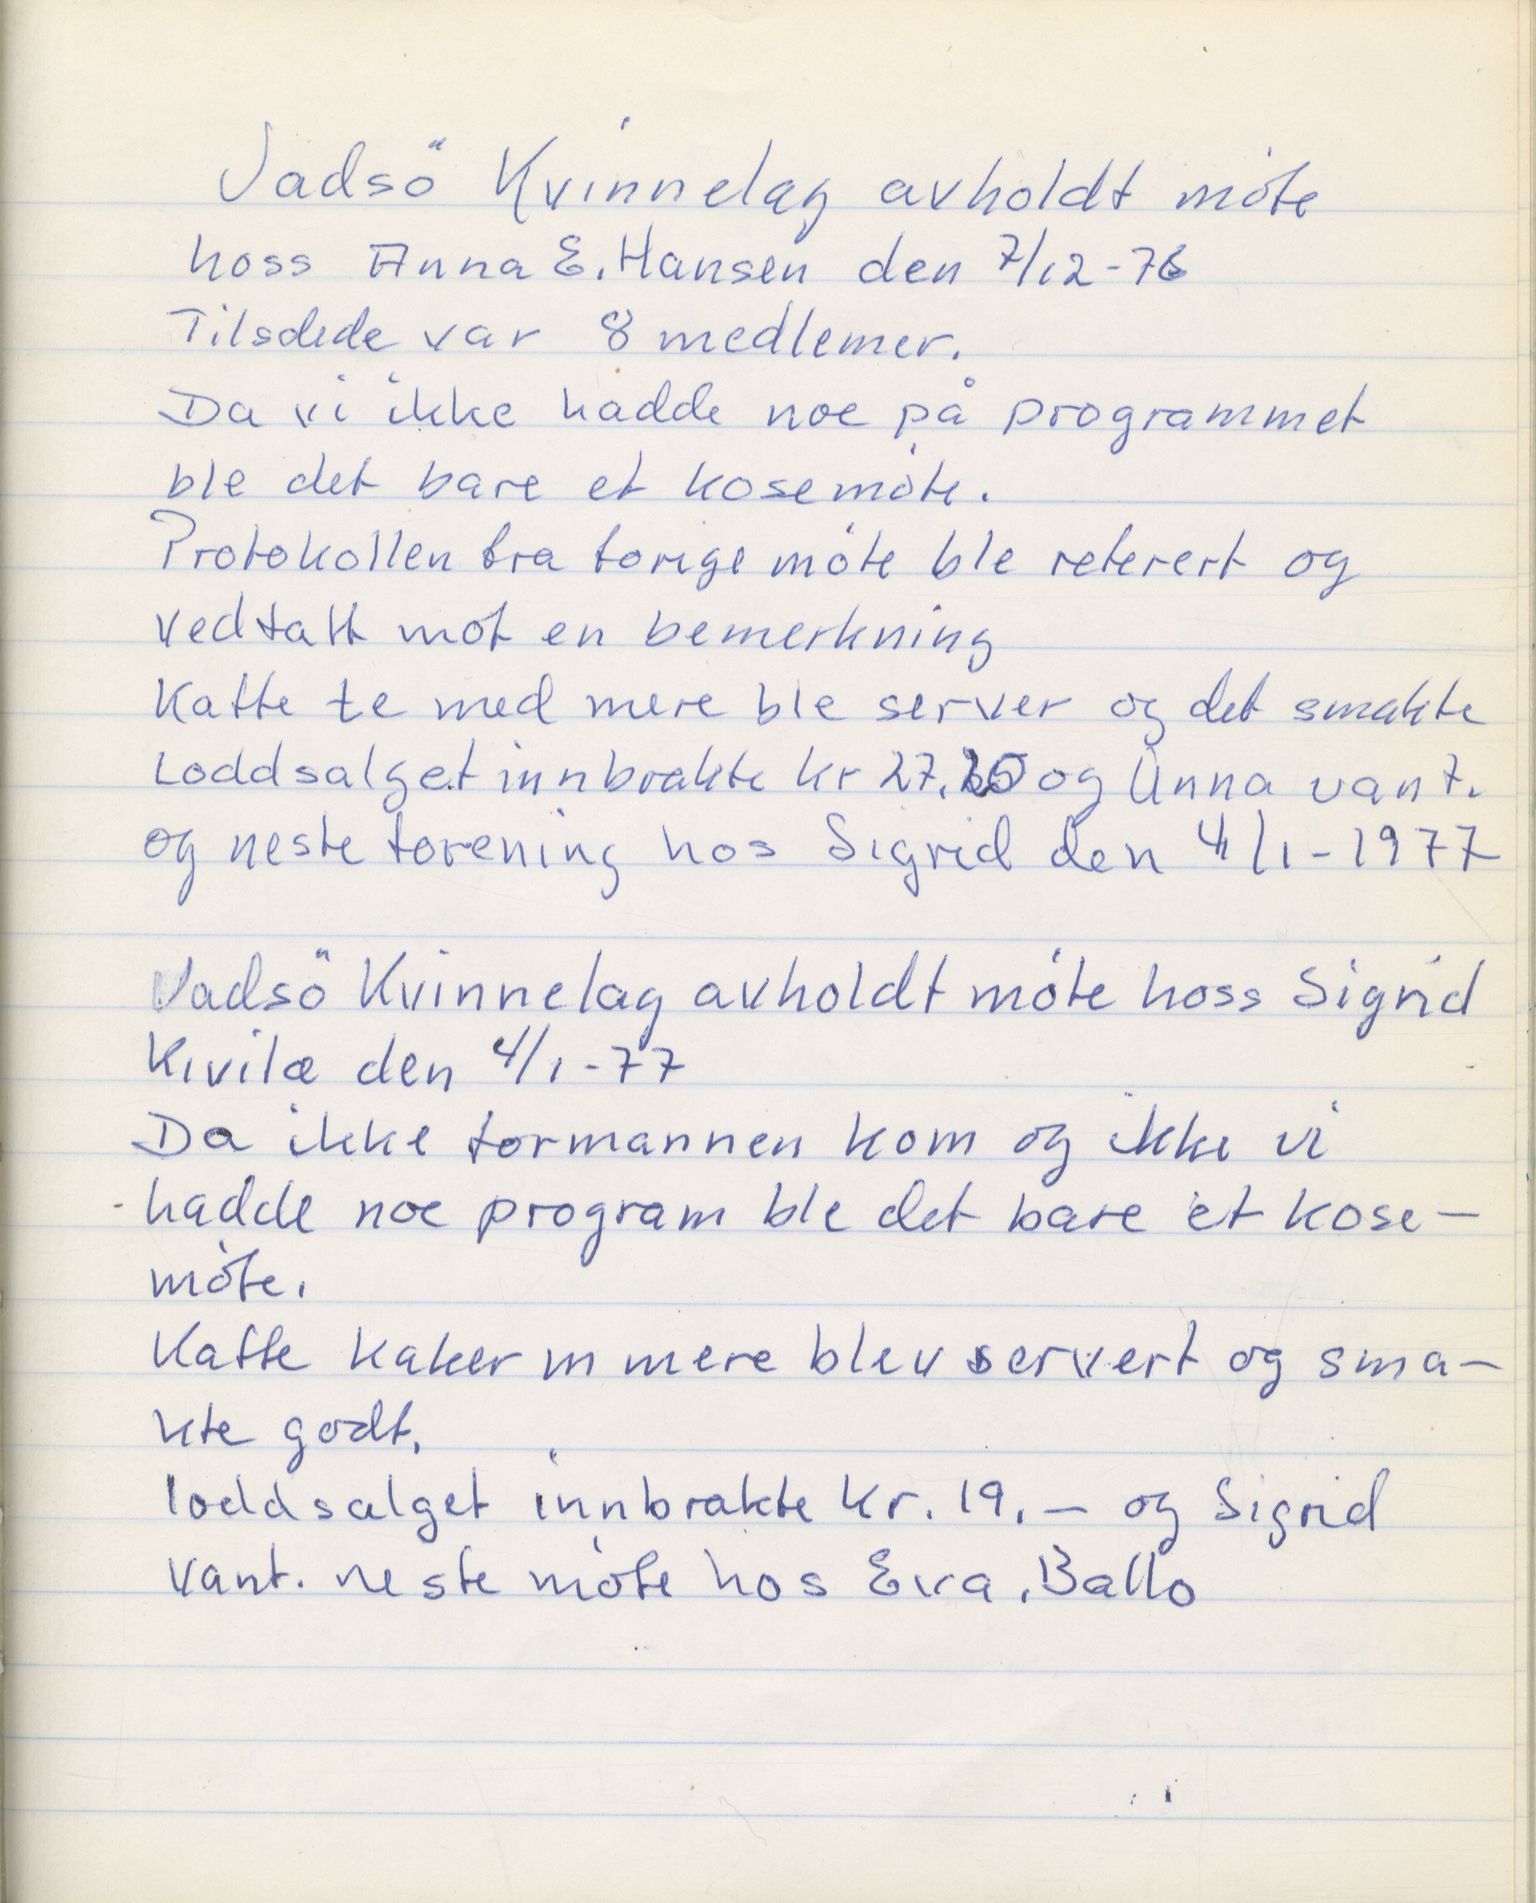 Vadsö Kvinnelag avholdt möte
hoss Anna E. Hansen den 7/12-76
Tilsdede var 8 medlemer.
Da vi ikke hadde noe på programmet
ble det bare et kosemöte.
Protokollen fra forige möte ble referert og
vedtatt mot en bemerkning
Kaffe te med mere ble server og det smakte
Loddsalget innbrakte kr 27,20 og Unna vant.
og neste forening hos Sigrid den 4/1-1977
Vadsö Kvinnelag avholdt möte hoss Sigrid
Kivilæ den 4/1-77
Da ikke formannen kom og ikke vi
hadde noe program ble det bare et kose-
möte.
Kaffe kaker m mere blev servert og sma-
kte godt,
loddsalget innbrakte kr. 19.- og Sigrid
vant. neste möte hos Eva. Ballo